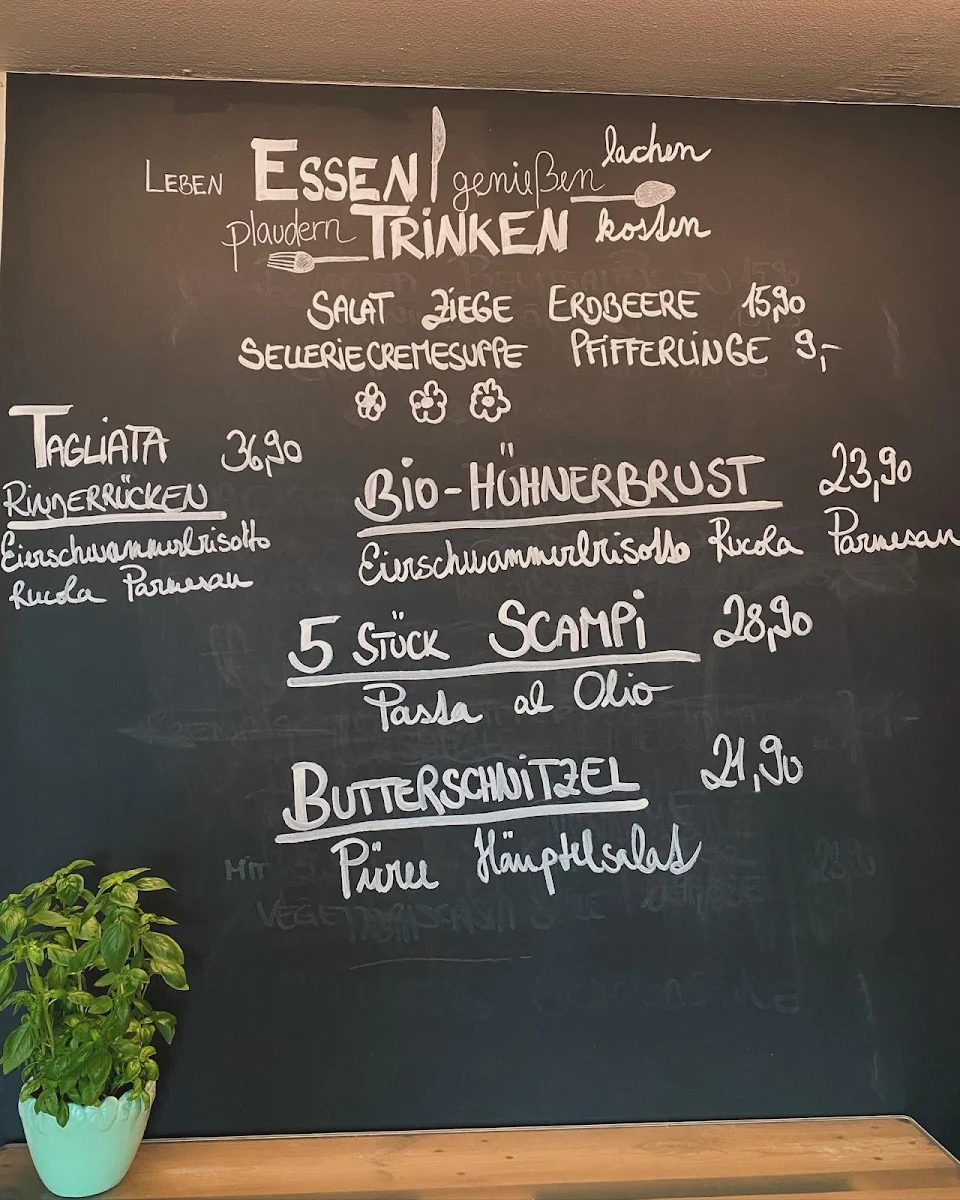 LEBEN ESSEN genießen lachen
plaudern TRINKEN kosten
SALAT ZIEGE ERDBEERE 15,90
SELLERIECREMESUPPE PFIFFERLINGE 9,-
TAGLIATA 36,90
RINDERRÜCKEN
Eierschwammerlrisotto
Rucola Parmesan
BIO-HÜHNERBRUST 23,90
Eierschwammerlrisotto Rucola Parmesan
5 STÜCK SCAMPI 28,90
Pasta al Olio
BUTTERSCHNITZEL 21,90
Püree Häuptelsalat
MIT